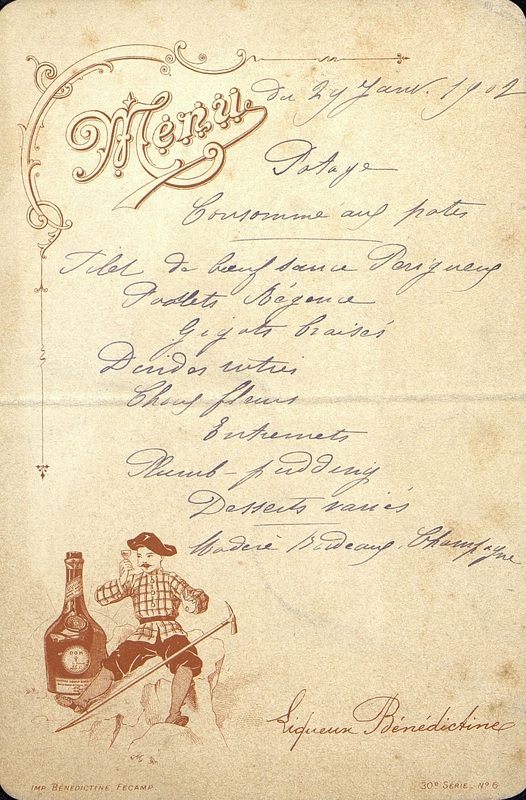 Menu
du 29 Janv. 1902
Potage
Consommé aux pates
Filet de bœuf sauce Perigueux
Poulets Régence
Gigots braisés
Dindes roties
Choux fleurs
Entremets
Plumb-pudding
Desserts variés
Madère Bordeaux. Champagne
DOM
Liqueur Bénédictine
IMP. BÉNÉDICTINE, FÉCAMP.
30e SÉRIE. No 6